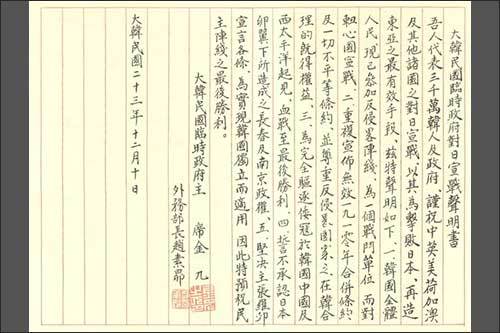 大韓民國臨時政府對日宣戰聲明書
吾人代表三千萬韓人及政府、謹祝中英美荷加澳
及其他諸國之對日宣戰、以其為擊敗日本、再造
東亞之最有效手段、茲特聲明如下、一、韓國全體
人民現已參加反侵畧陣綫、為一個戰鬥單位、而對
軸心國宣戰、二、重複宣佈無效一九一〇年合併條約、
及一切不平等條約、並尊重反侵畧國家之、在韓合
理的既得權益、三、為完全驅逐倭寇於韓國中國及
西太平洋起見、血戰至最後勝利、四、誓不承認日本
卵翼下所造成之長春及南京政權、五、堅決主張羅邱
宣言各條、為實現韓國獨立而適用 因此特預祝民
主陣綫之最後勝利。
大韓民國臨時政府主 席金 九
外務部長趙素昂
大韓民國二十三年十二月十日